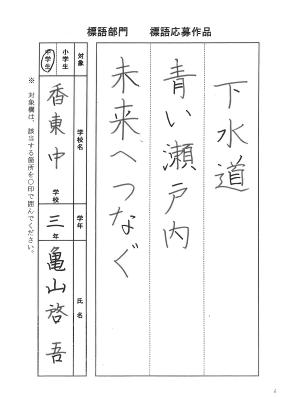 標語部門 標語応募作品
下水道
青い瀬戸内
未来へつなぐ
対象
小学生
中学生
学校名
香東中
学校
学年
三年
氏名
亀山啓吾
※ 対象欄は、該当する箇所を〇印で囲んでください。